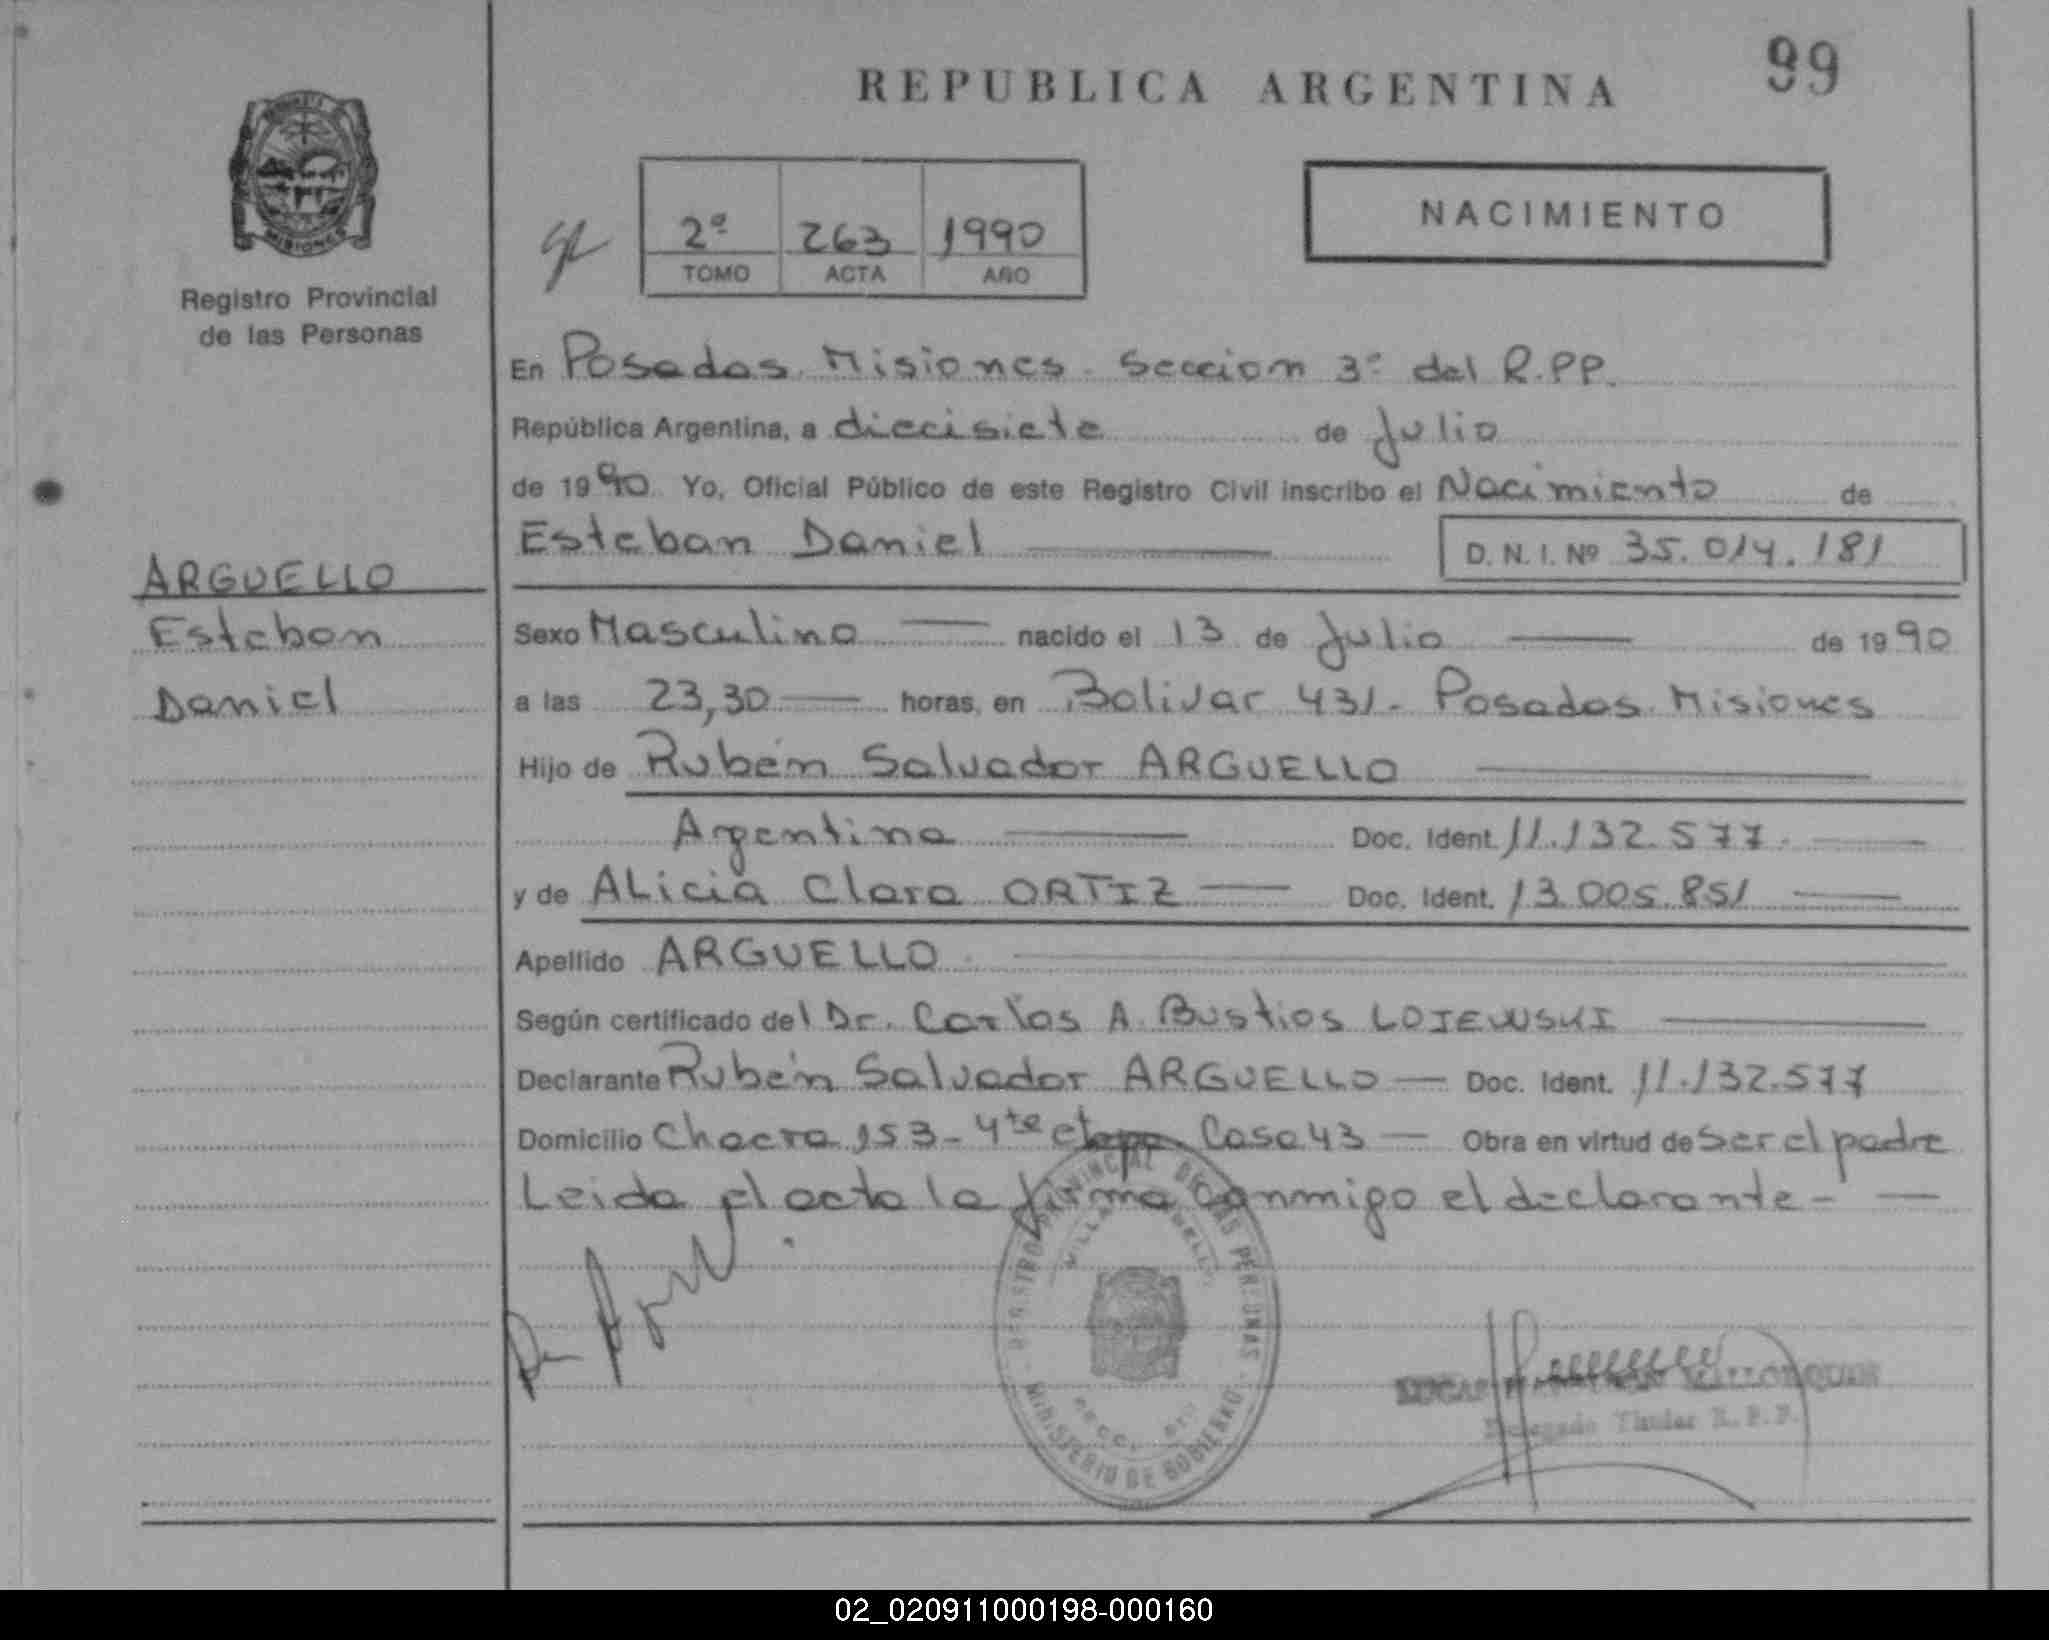 REPUBLICA ARGENTINA
99
MISIONES
Registro Provincial
de las Personas
2º 263 1990
TOMO ACTA AÑO
NACIMIENTO
En Posadas Misiones - Seccion 3º del R.P.P.
República Argentina, a diecisiete de Julio
de 1990 Yo, Oficial Público de este Registro Civil inscribo el Nacimiento de
Esteban Daniel
D. N. I. Nº 35.014.181
ARGUELLO
Esteban
Daniel
Sexo Masculino nacido el 13 de Julio de 1990
a las 23,30 horas, en Bolivar 431 - Posadas Misiones
Hijo de Rubén Salvador ARGUELLO
Argentina Doc. Ident. 11.132.577
y de Alicia Clara ORTIZ Doc. Ident. 13.005.851
Apellido ARGUELLO
Según certificado del Dr. Carlos A. Bustios LOJEWSKI
Declarante Rubén Salvador ARGUELLO Doc. Ident. 11.132.577
Domicilio Chacra 153 - 4te etapa Casa 43 Obra en virtud de ser el padre
Leida el acta la firma conmigo el declarante -
REGISTRO PROVINCIAL DE LAS PERSONAS
MINISTERIO DE GOBIERNO
Delegado Titular R. P. P.
02_020911000198-000160